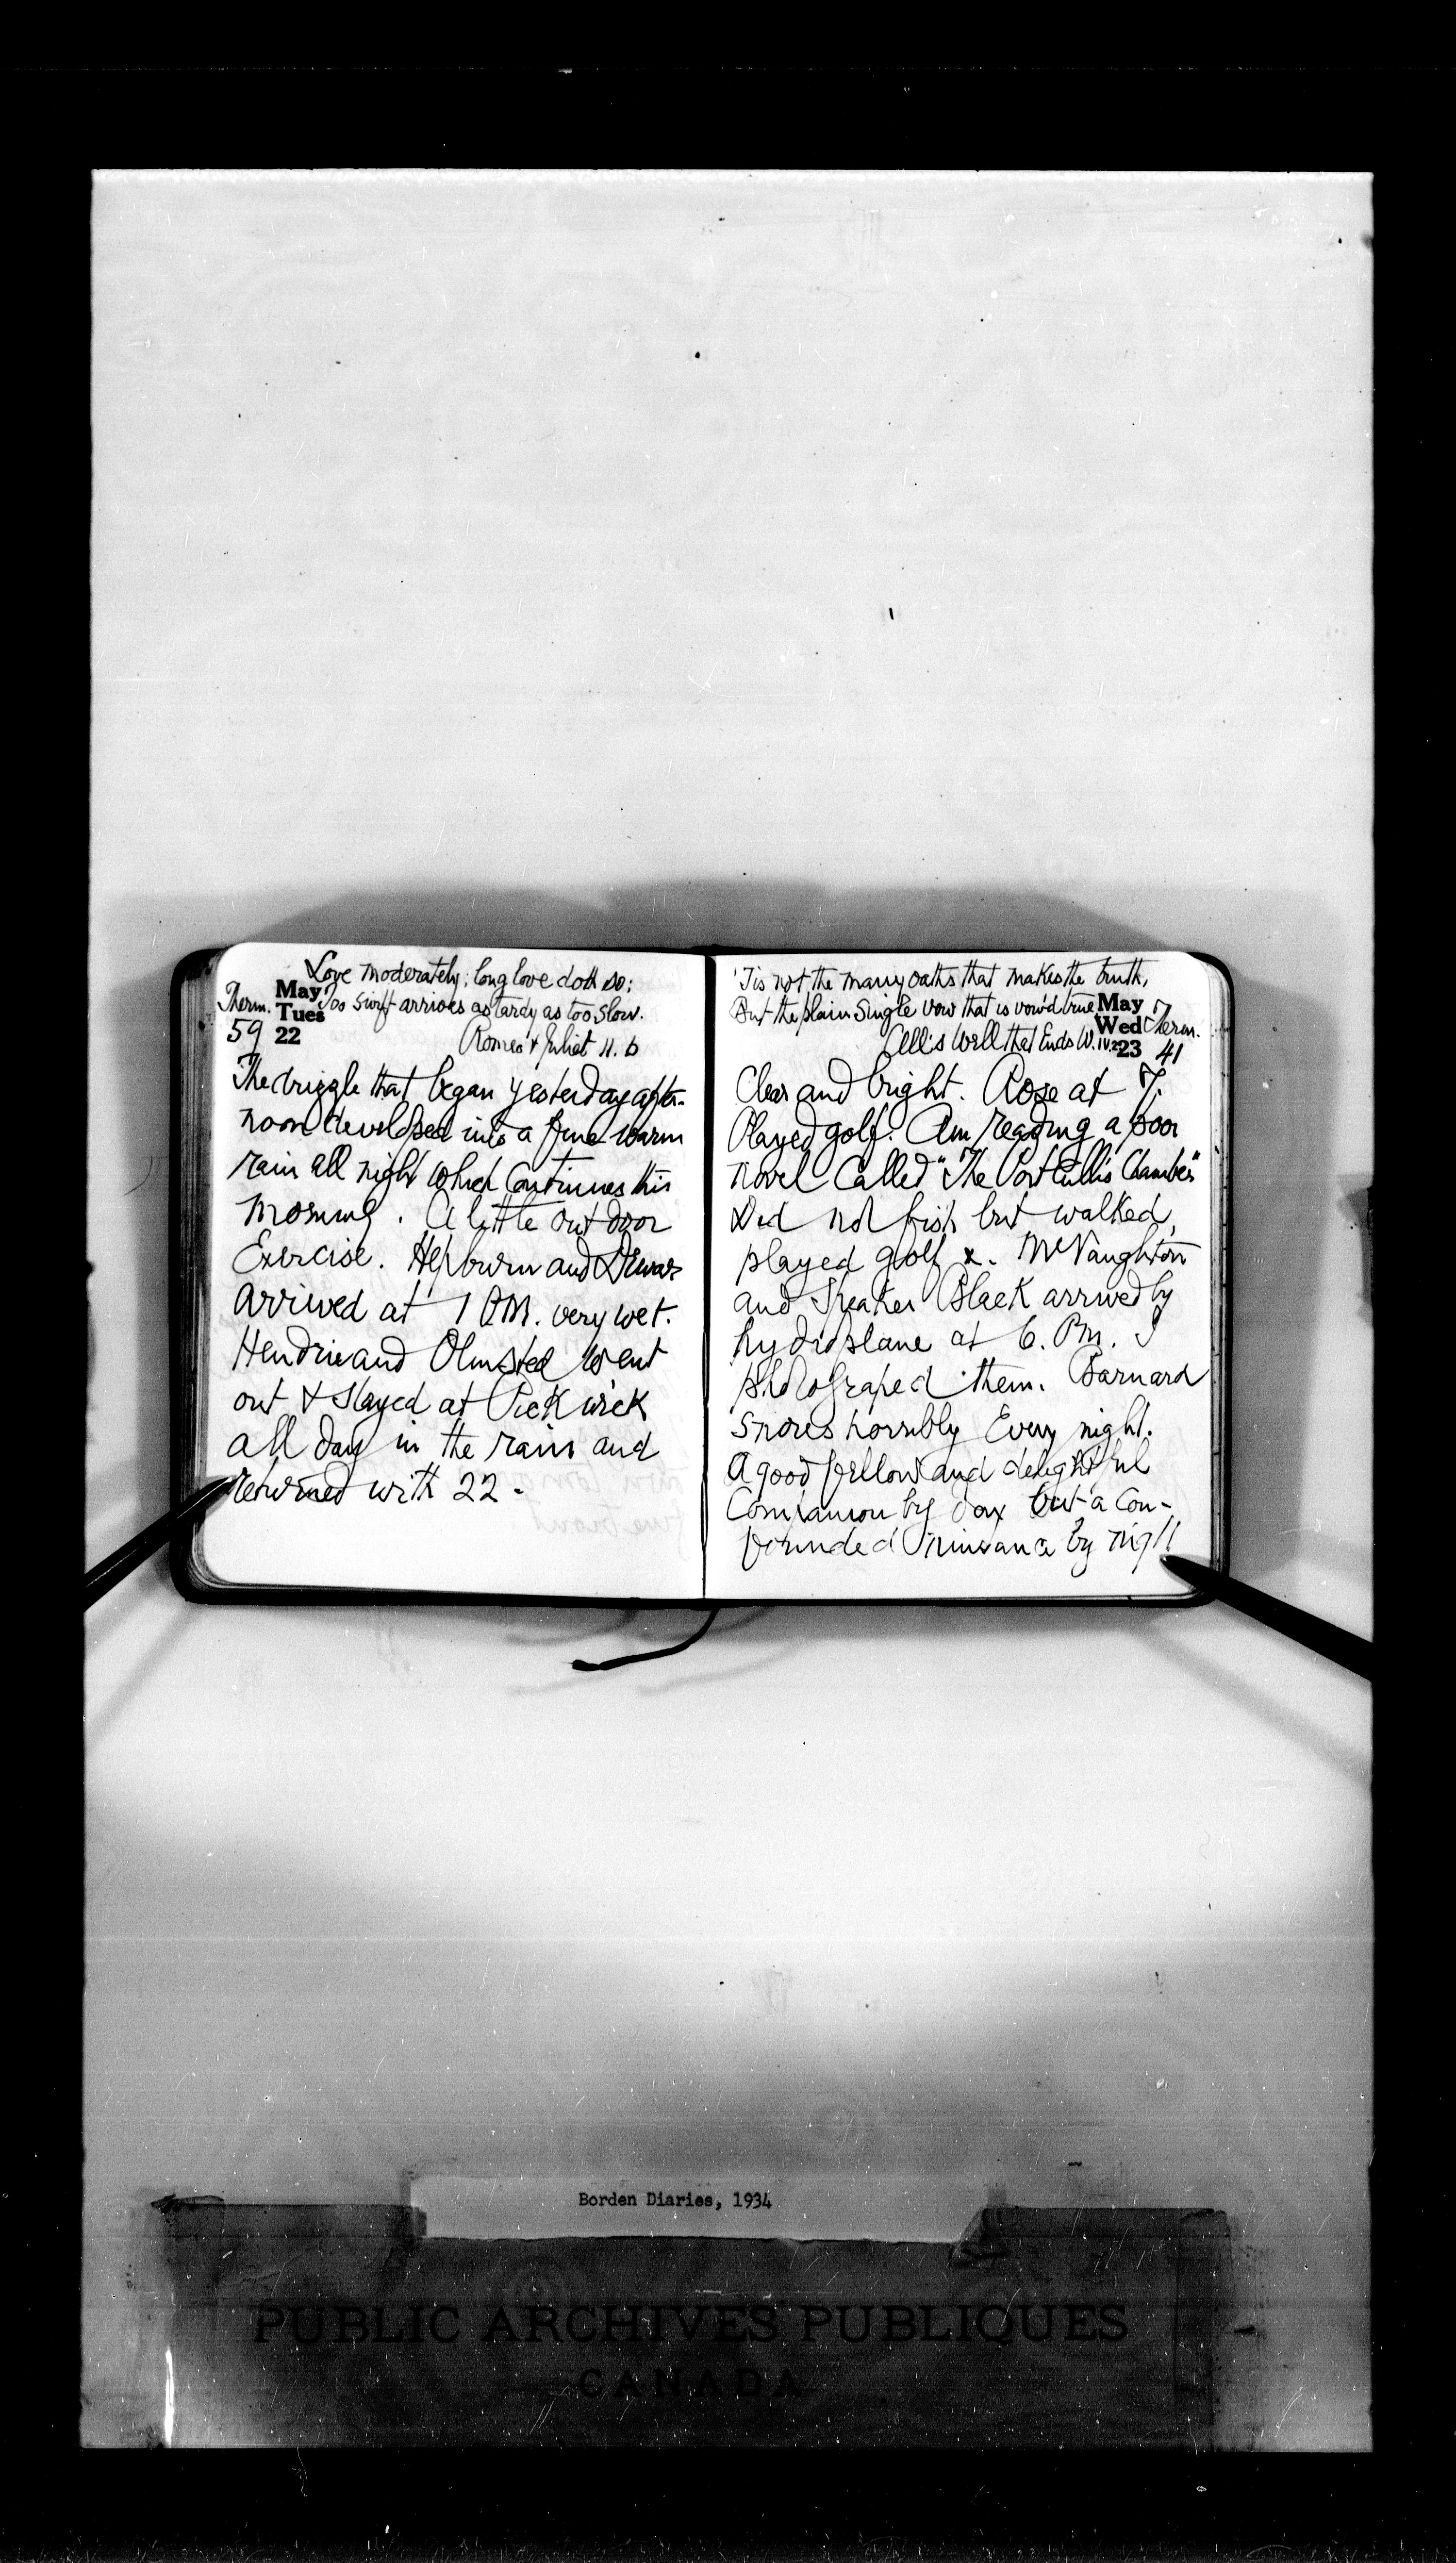 Love moderately; long love doth so;
Therm. May Too swift arrives as tardy as too slow.
59 Tues
22 Romeo & Juliet II. 6
The drizzle that began yesterday after-
noon developed into a fine warm
rain all night which continues this
morning. A little out door
Exercise. Hepburn and Dewar
arrived at 1 P.M. very wet.
Hendrie and Olmsted went
out & stayed at Pickwick
all day in the rain and
returned with 22.
'Tis not the many oaths that makes the truth,
But the plain single vow that is vow'd true May 7
Wed Therm.
All's Well that Ends W. IV. 2 23 41
Clear and bright. Rose at 7.
Played golf. Am reading a poor
novel called "The Portcullis Chamber"
Did not fish but walked,
played golf &. McNaughton
and Speaker Black arrived by
hydroplane at 6. P.m. I
photograped them. Barnard
snores horribly Every night.
A good fellow and delightful
Companion by day but a Con-
founded nuisance by night
Borden Diaries, 1934
PUBLIC ARCHIVES PUBLIQUES
CANADA